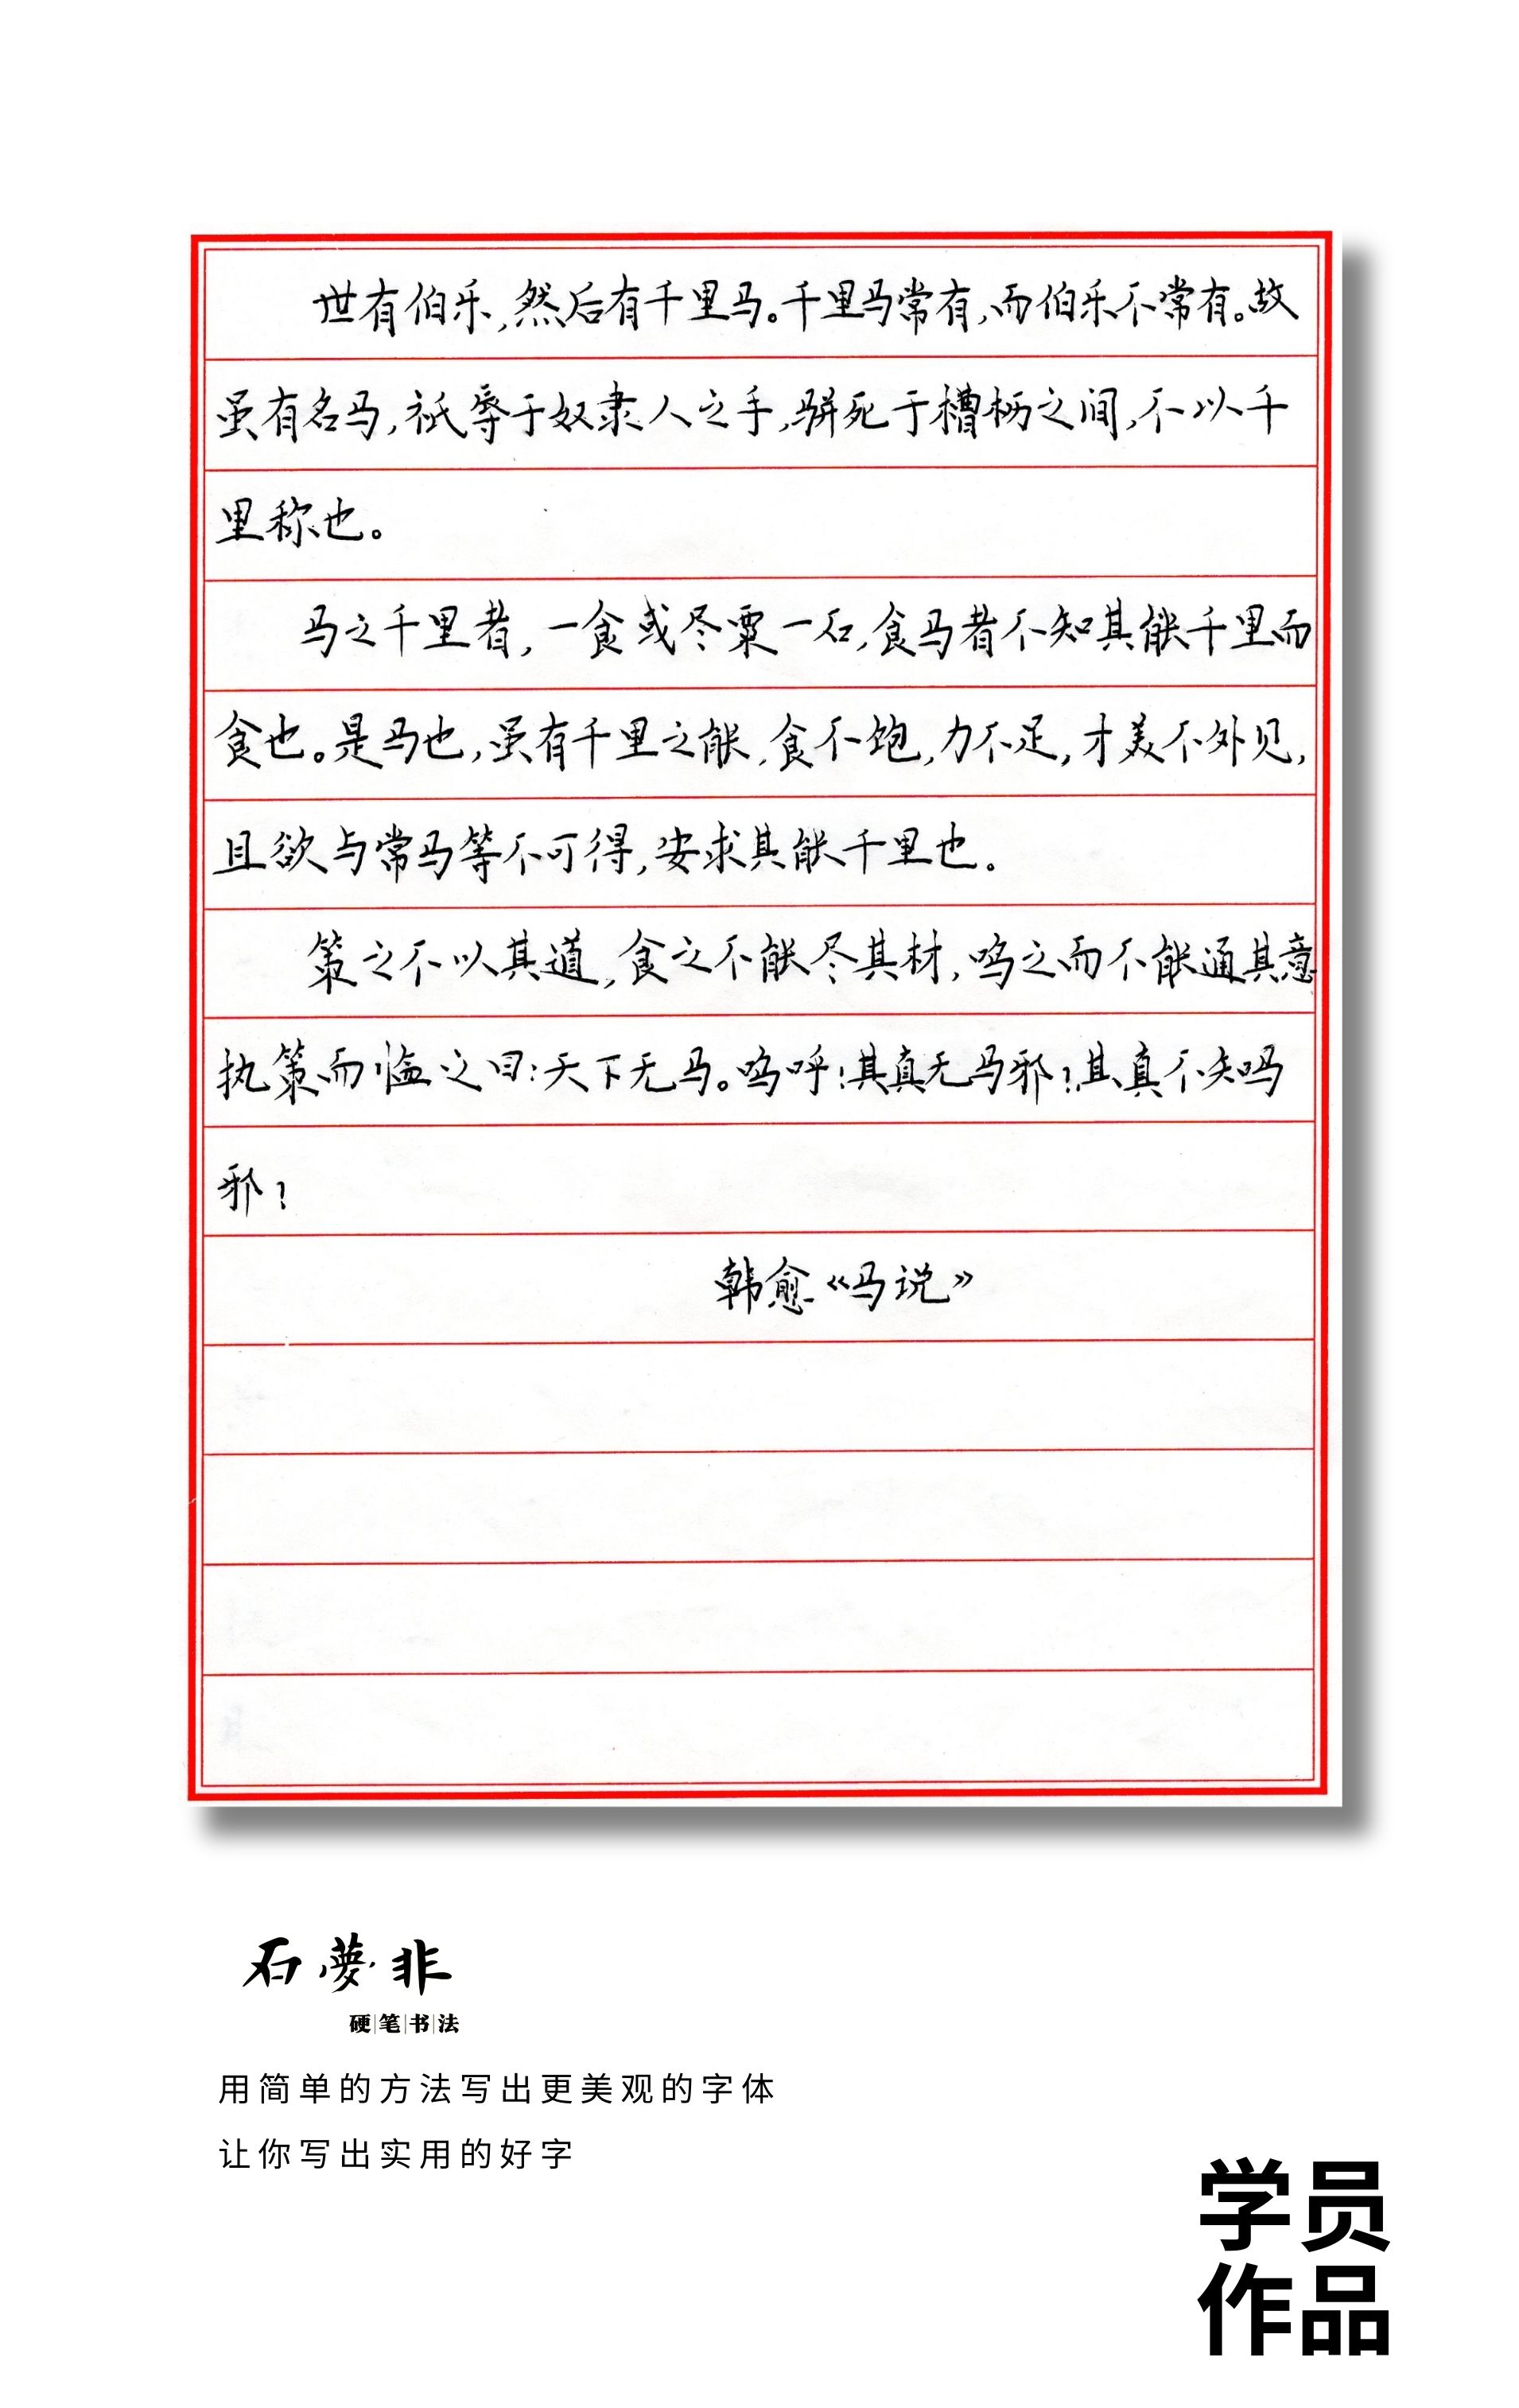 世有伯乐,然后有千里马。千里马常有,而伯乐不常有。故
虽有名马,祇辱于奴隶人之手,骈死于槽枥之间,不以千
里称也。
马之千里者,一食或尽粟一石,食马者不知其能千里而
食也。是马也,虽有千里之能,食不饱,力不足,才美不外见,
且欲与常马等不可得,安求其能千里也。
策之不以其道,食之不能尽其材,鸣之而不能通其意
执策而临之曰:天下无马。呜呼!其真无马邪?其真不知吗
邪?
韩愈《马说》
石夢非
硬笔书法
用简单的方法写出更美观的字体
让你写出实用的好字
学员
作品